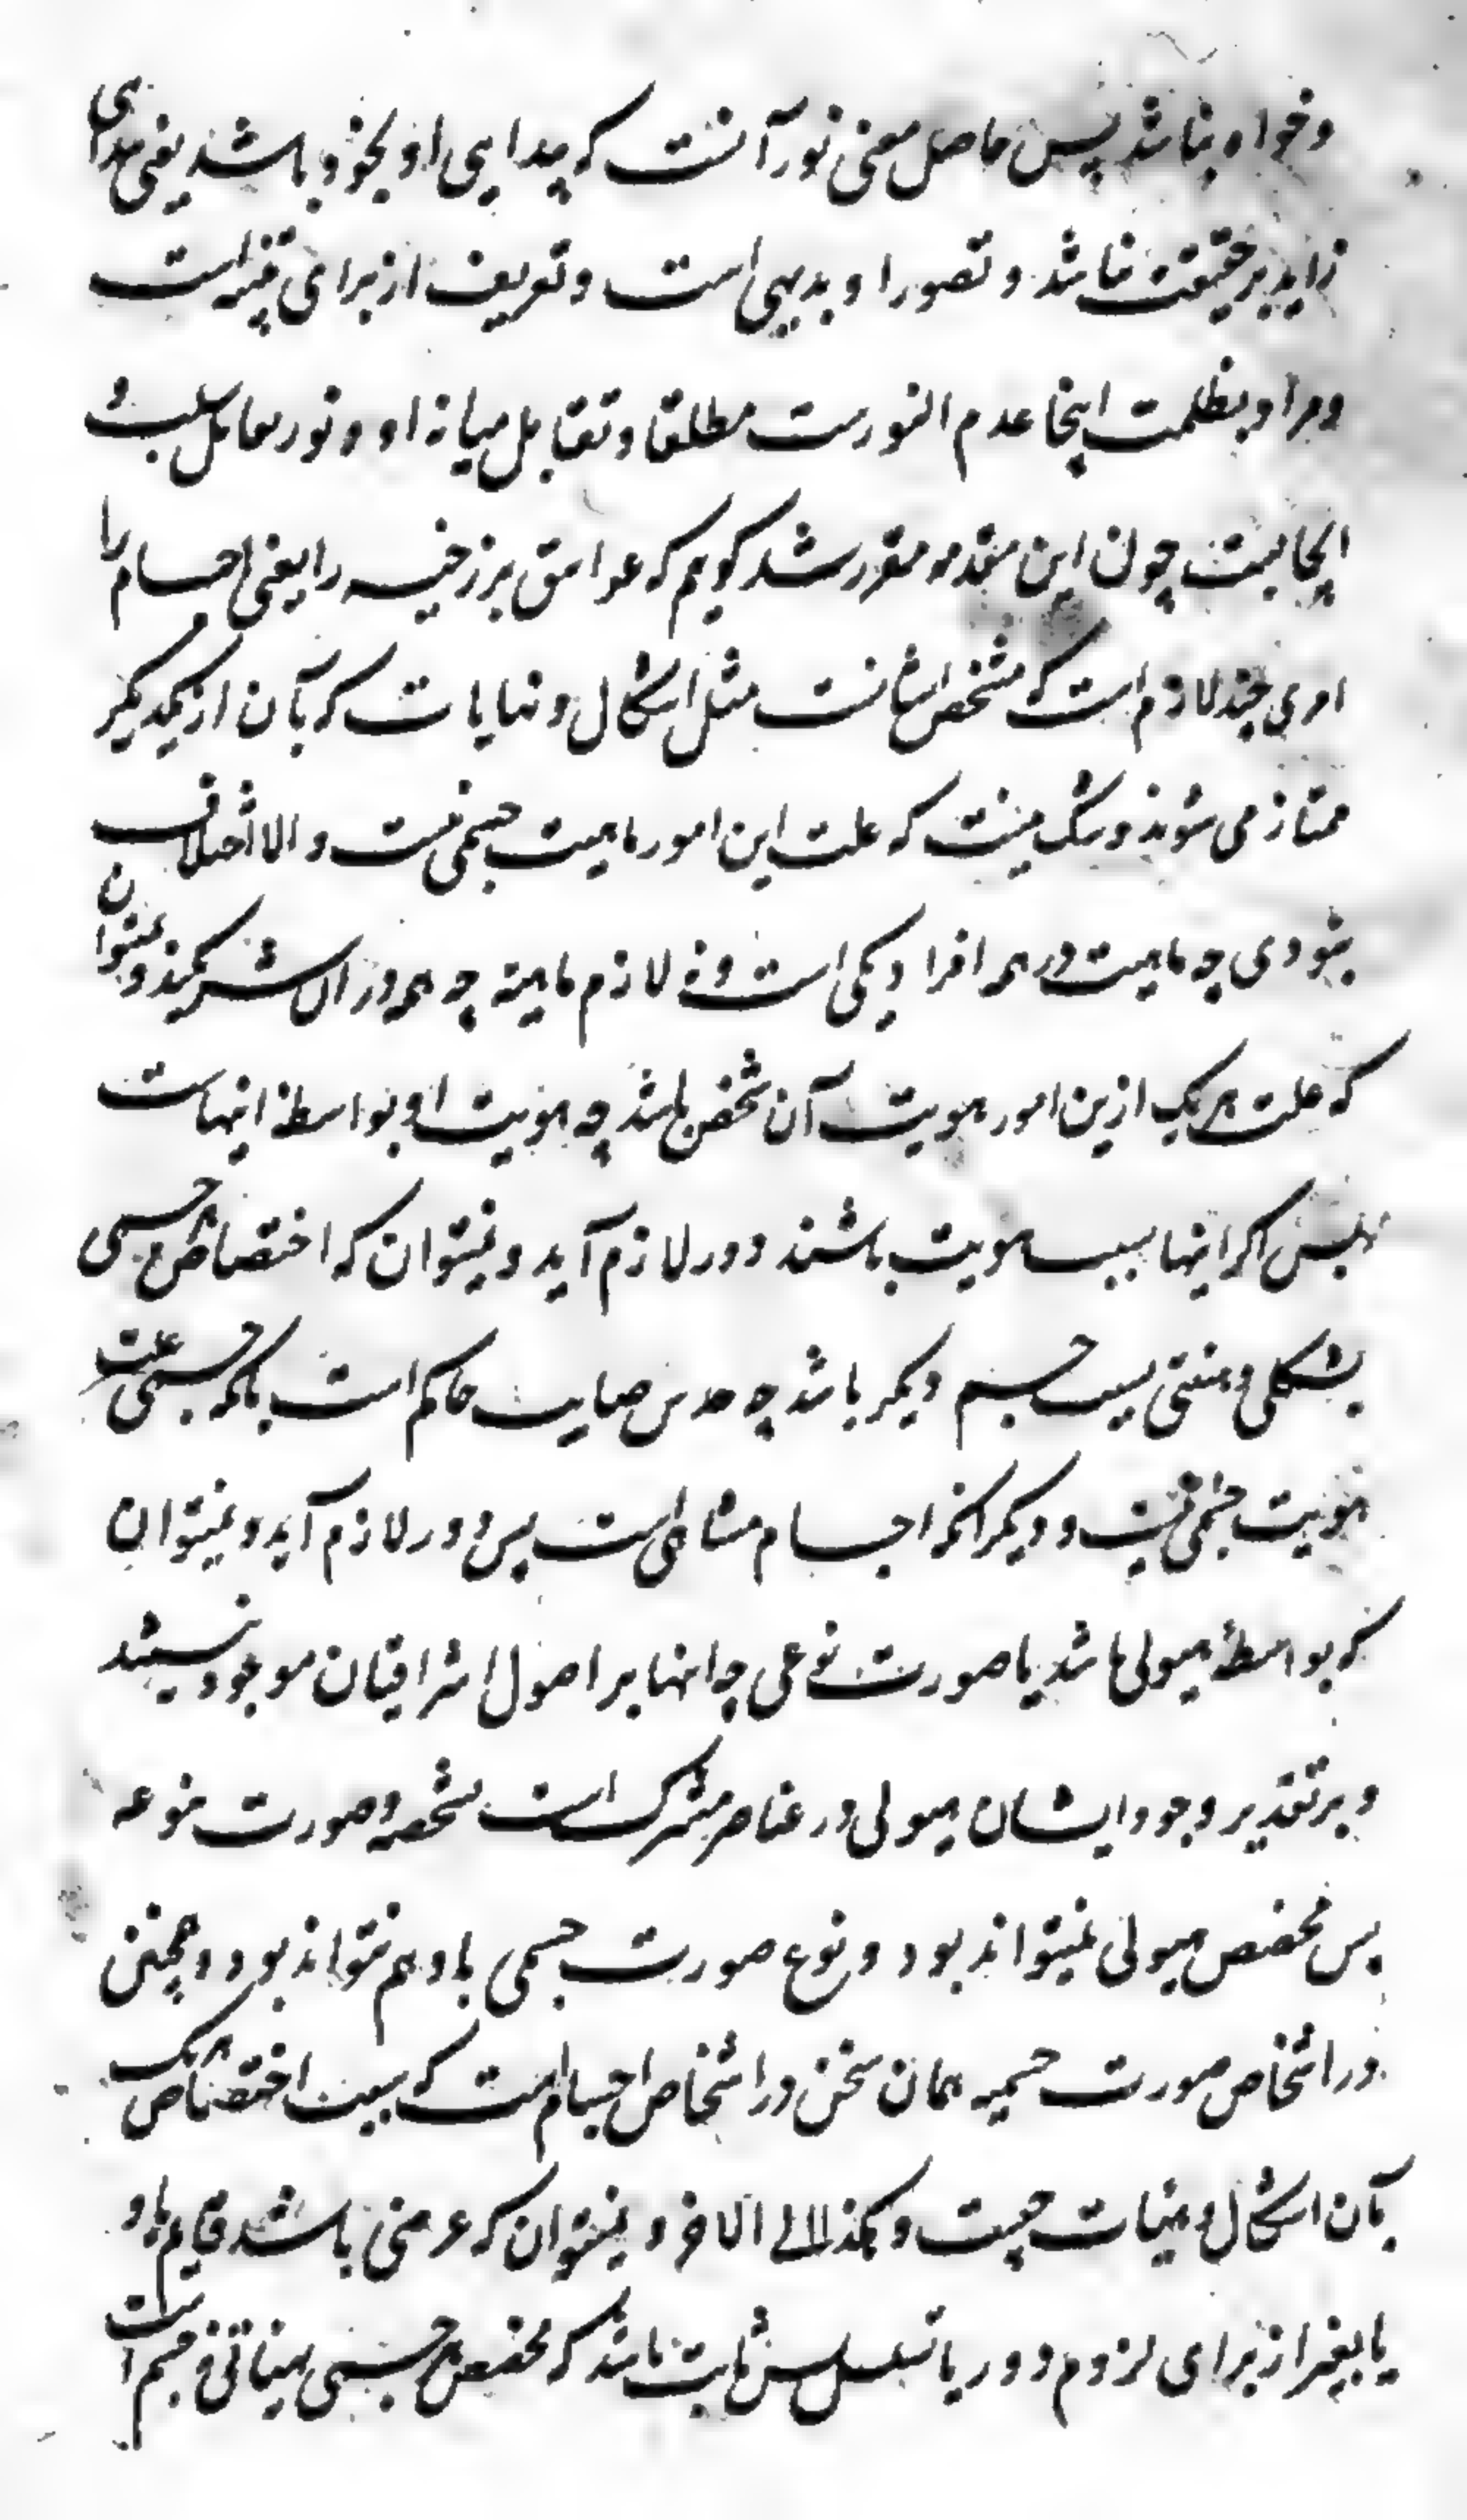 و خواه نباشد پس حاصل معنی نور آنست که پیدایی او بخود باشد یعنی پیدایی
زاید بر حقیقت نباشد و تصور او بدیهی است و تعریف از برای تنبیه است
و مراد بظلمت اینجا عدم النورست مطلقا و تقابل میانه او و نور تقابل سلب و
ایجابست چون این مقدمه مقرر شد گویم که غواسق برزخیه را یعنی اجسام را
امری چند لازم است که مشخص ایشانست مثل اشکال و نهایات که بآن از یکدیگر
ممتاز می شوند و شک نیست که علت این امور ماهیت جسمی نیست و الا اختلاف
نبودی چه ماهیت در همه افراد یکی است و نه لازم ماهیة چه همه در ان شریکند و نمیتوان
که علت هر یک ازین امور هویت آن شخص باشد چه هویت او بواسطه اینهاست
پس اگر اینها بسبب هویت باشند دور لازم آید و نمیتوان که اختصاص هر جسمی
بشکلی و هیئتی بسبب جسم دیگر باشد چه حدس صایب حاکم است بآنکه جسمی علت
هویت جسمی نیست و دیگر آنکه اجسام متناهی است پس دور لازم آید و نمیتوان
که بواسطه هیولی باشد یا صورت نوعی چه اینها بر اصول اشراقیان موجود نیستند
و بر تقدیر وجود ایشان هیولی در عناصر مشترکست بشخصه و صورت منوعه
پس مخصص هیولی نمیتواند بود و نوع صورت جسمی با او هم نتواند بود و همچنین
در اشخاص صورت جسمیه همان سخن در اشخاص اجسام است که سبب اختصاص هر یک
بآن اشکال و هیئات چیست و هکذا الی الاخر و نمیتوان که عرضی باشد قایم باو
یا بغیر از برای لزوم دور یا تسلسل پس ثابت باشد که مخصص هر جسمی بهیئاتی نه جسم است